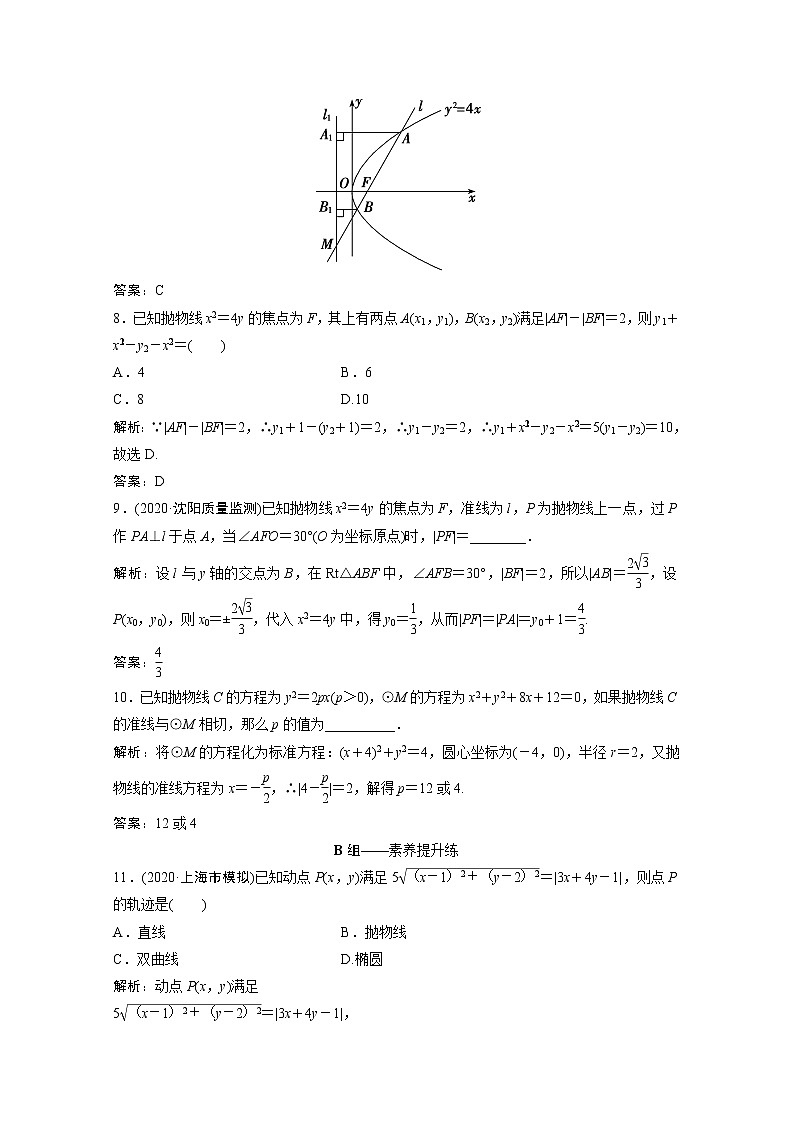 y
l
y²=4x
l₁
A₁
A
O
F
x
B₁
B
M
答案：C
8．已知抛物线x²＝4y的焦点为F，其上有两点A(x₁，y₁)，B(x₂，y₂)满足|AF|－|BF|＝2，则y₁＋
x²－y₂－x²＝(　　)
A．4　　B．6
C．8　　D.10
解析：∵|AF|－|BF|＝2，∴y₁＋1－(y₂＋1)＝2，∴y₁－y₂＝2，∴y₁＋x²－y₂－x²＝5(y₁－y₂)＝10，
故选D.
答案：D
9．(2020·沈阳质量监测)已知抛物线x²＝4y的焦点为F，准线为l，P为抛物线上一点，过P
作PA⊥l于点A，当∠AFO＝30°(O为坐标原点)时，|PF|＝________．
解析：设l与y轴的交点为B，在Rt△ABF中，∠AFB＝30°，|BF|＝2，所以|AB|＝2√3/3，设
P(x₀，y₀)，则x₀＝±2√3/3，代入x²＝4y中，得y₀＝1/3，从而|PF|＝|PA|＝y₀＋1＝4/3.
答案：4/3
10．已知抛物线C的方程为y²＝2px(p＞0)，⊙M的方程为x²＋y²＋8x＋12＝0，如果抛物线C
的准线与⊙M相切，那么p的值为__________．
解析：将⊙M的方程化为标准方程：(x＋4)²＋y²＝4，圆心坐标为(－4，0)，半径r＝2，又抛
物线的准线方程为x＝－p/2，∴|4－p/2|＝2，解得p＝12或4.
答案：12或4
B组——素养提升练
11．(2020·上海市模拟)已知动点P(x，y)满足5√（x－1）²＋（y－2）²＝|3x＋4y－1|，则点P
的轨迹是(　　)
A．直线　　B．抛物线
C．双曲线　　D.椭圆
解析：动点P(x，y)满足
5√（x－1）²＋（y－2）²＝|3x＋4y－1|，